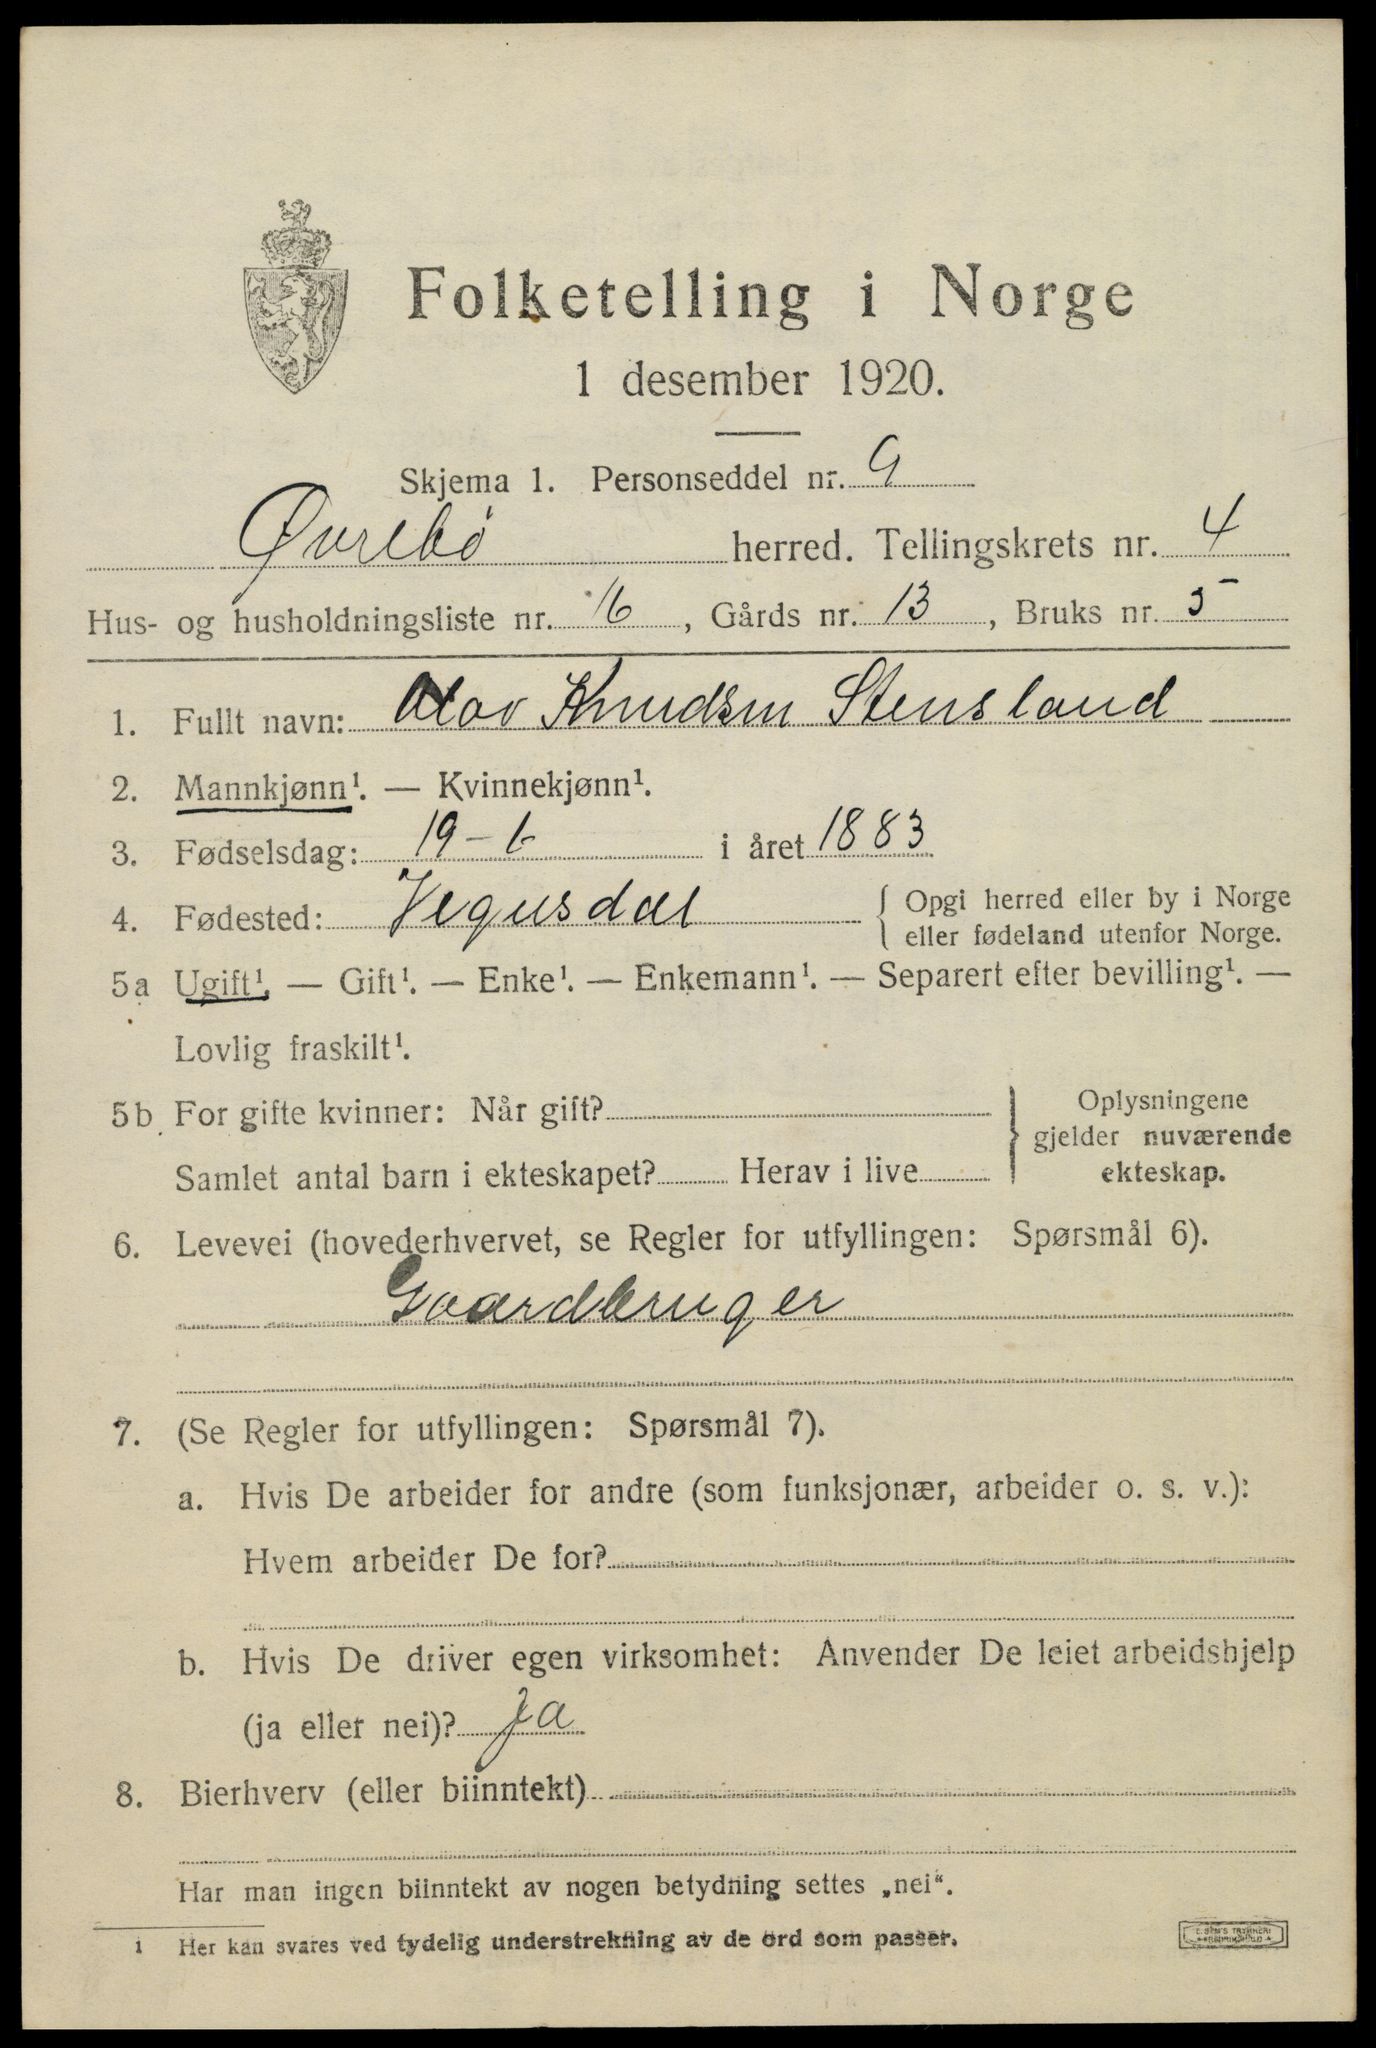 Folketelling i Norge
1 desember 1920.
Skjema 1. Personseddel nr. 9
Øvrebø herred. Tellingskrets nr. 4
Hus- og husholdningsliste nr. 16, Gårds nr. 13, Bruks nr. 5
1. Fullt navn: Olav Knudsen Stensland
2. Mannkjønn¹. — Kvinnekjønn¹.
3. Fødselsdag: 19-6 i året 1883
4. Fødested: Vegusdal { Opgi herred eller by i Norge
eller fødeland utenfor Norge.
5a Ugift¹. — Gift¹. — Enke¹. — Enkemann¹. — Separert efter bevilling¹. —
Lovlig fraskilt¹.
5b For gifte kvinner: Når gift?
Samlet antal barn i ekteskapet? Herav i live
} Oplysningene
gjelder nuværende
ekteskap.
6. Levevei (hovederhvervet, se Regler for utfyllingen: Spørsmål 6).
Gaardbruger
7. (Se Regler for utfyllingen: Spørsmål 7).
a. Hvis De arbeider for andre (som funksjonær, arbeider o. s. v.):
Hvem arbeider De for?
b. Hvis De driver egen virksomhet: Anvender De leiet arbeidshjelp
(ja eller nei)? Ja
8. Bierhverv (eller biinntekt)
Har man ingen biinntekt av nogen betydning settes „nei“.
1 Her kan svares ved tydelig understrekning av de ord som passer.